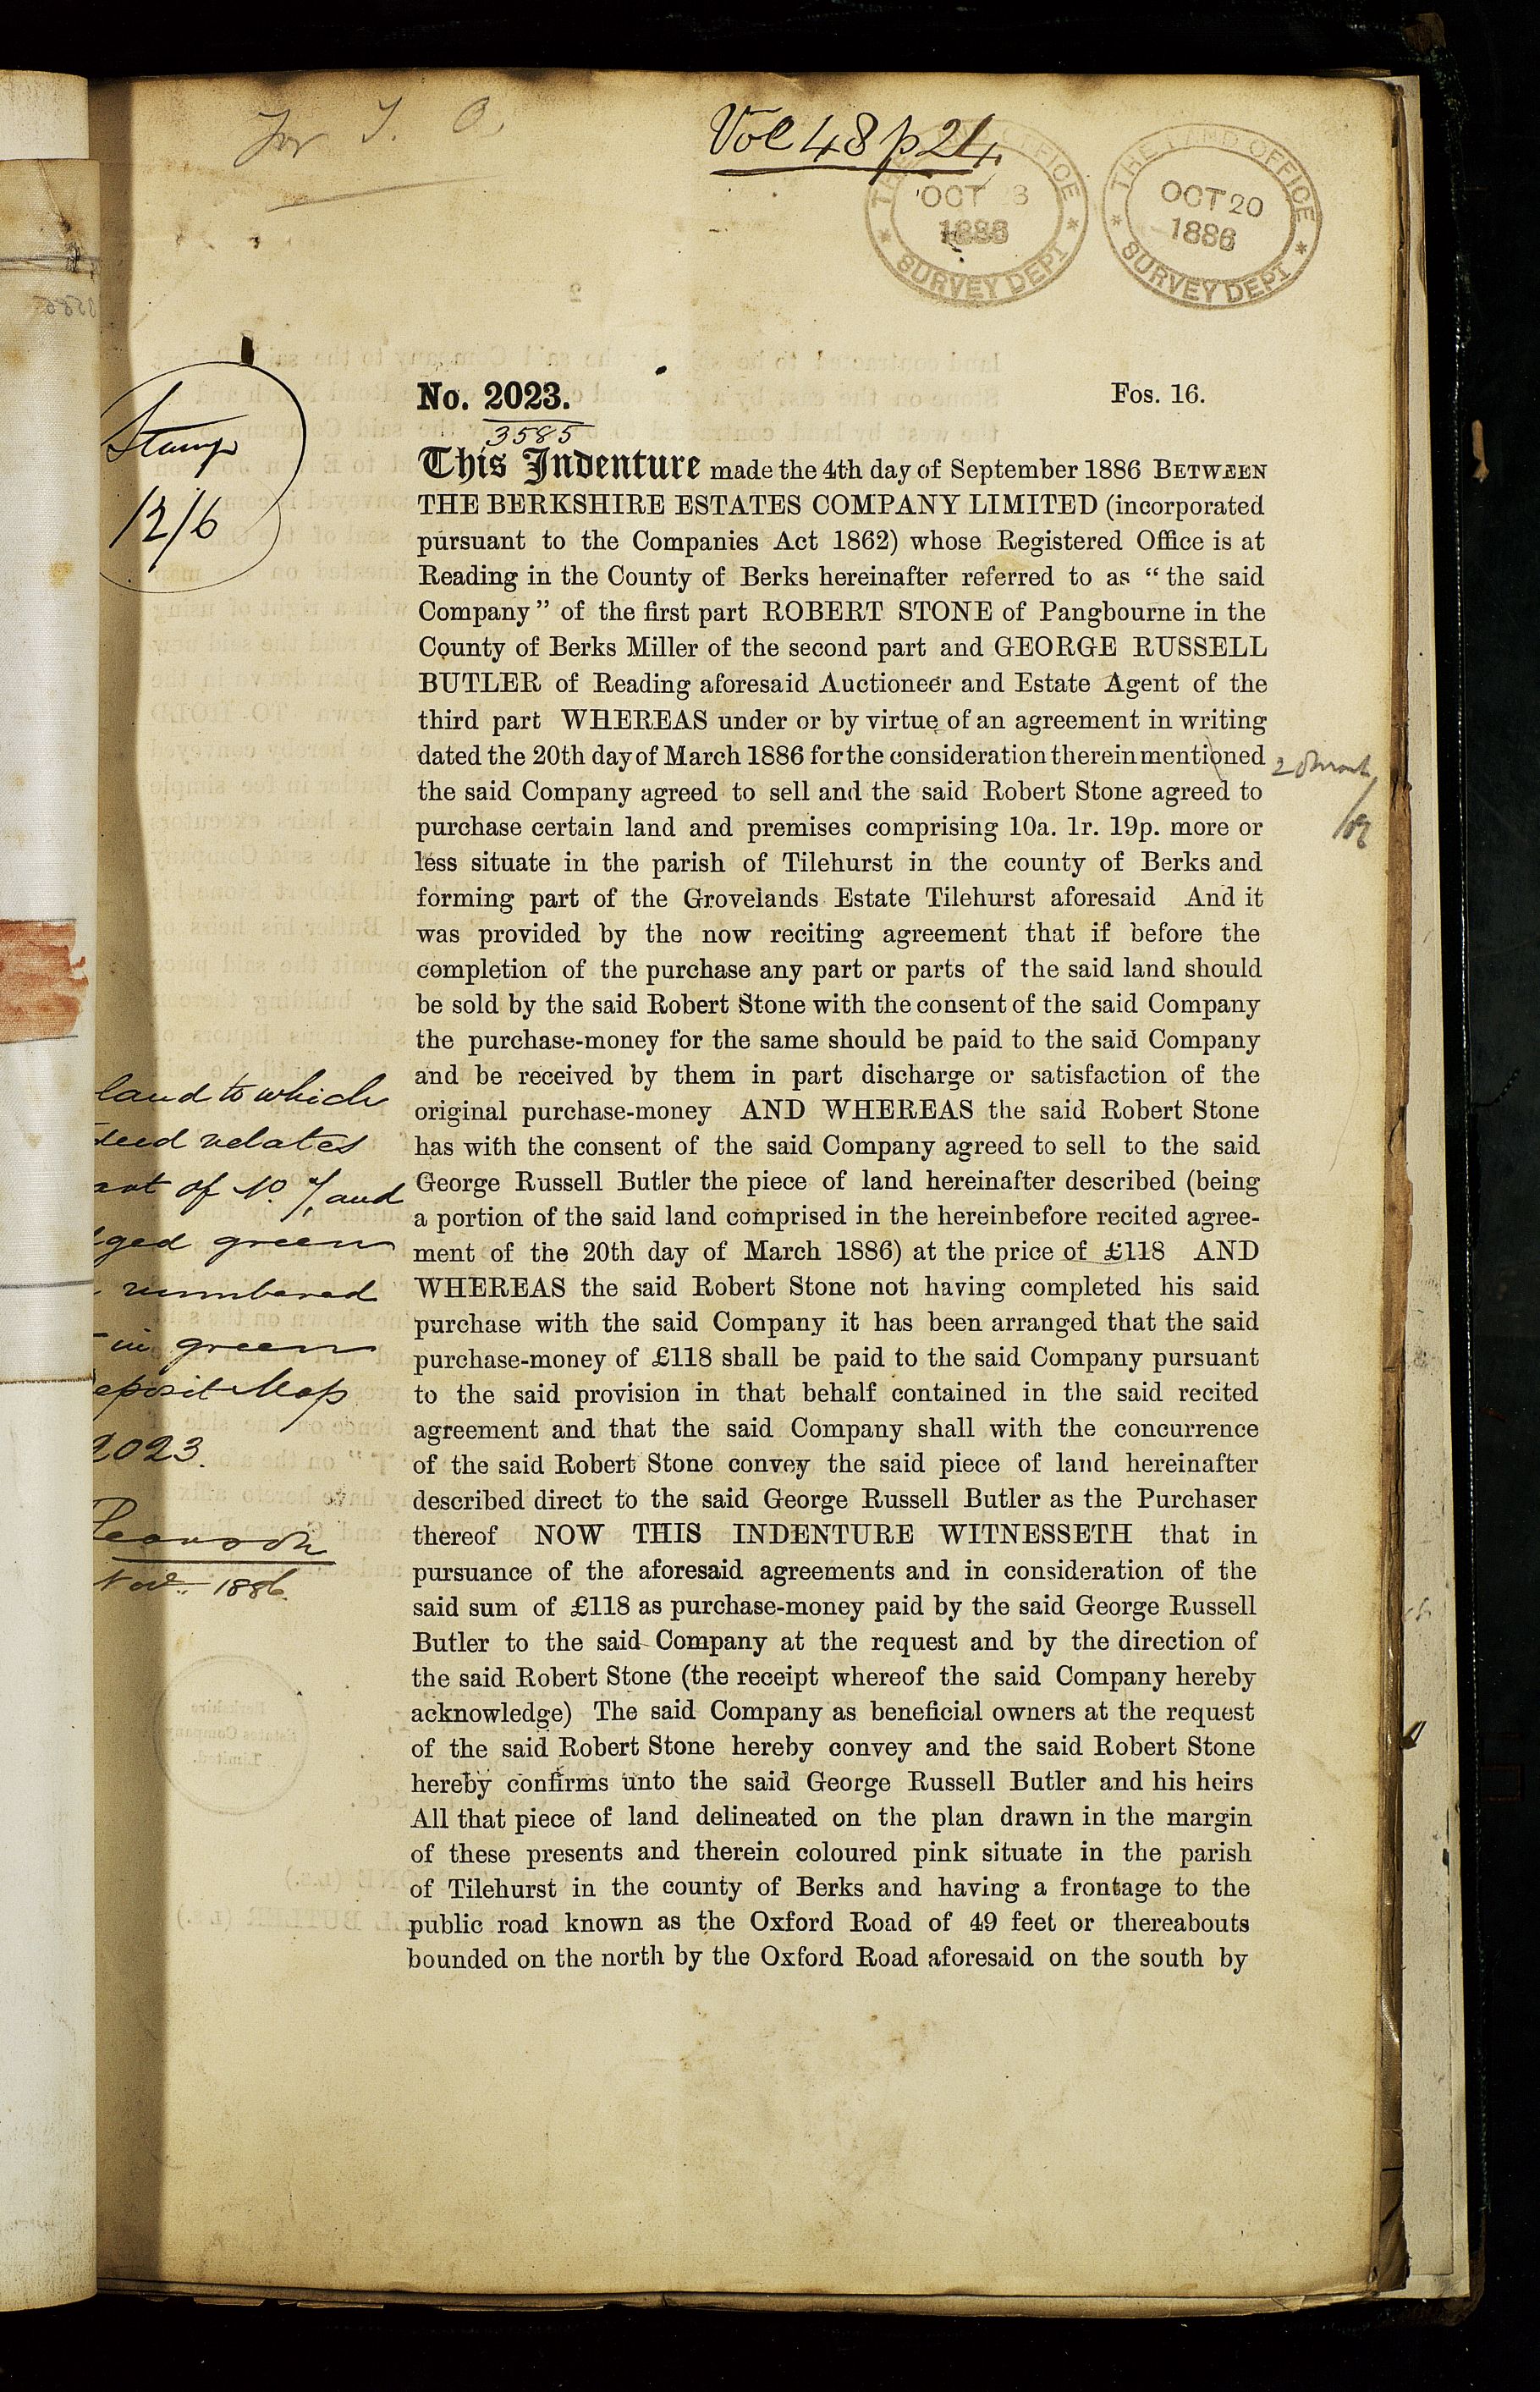 For T. O.
Vol 48 p 24
THE LAND OFFICE
OCT 3
1886
SURVEY DEPT
THE LAND OFFICE
OCT 20
1886
SURVEY DEPT
Stamp
12/6
No. 2023.
3585
Fos. 16.
This Indenture made the 4th day of September 1886 BETWEEN
THE BERKSHIRE ESTATES COMPANY LIMITED (incorporated
pursuant to the Companies Act 1862) whose Registered Office is at
Reading in the County of Berks hereinafter referred to as “ the said
Company ” of the first part ROBERT STONE of Pangbourne in the
County of Berks Miller of the second part and GEORGE RUSSELL
BUTLER of Reading aforesaid Auctioneer and Estate Agent of the
third part WHEREAS under or by virtue of an agreement in writing
dated the 20th day of March 1886 for the consideration therein mentioned
the said Company agreed to sell and the said Robert Stone agreed to
purchase certain land and premises comprising 10a. 1r. 19p. more or
less situate in the parish of Tilehurst in the county of Berks and
forming part of the Grovelands Estate Tilehurst aforesaid And it
was provided by the now reciting agreement that if before the
completion of the purchase any part or parts of the said land should
be sold by the said Robert Stone with the consent of the said Company
the purchase-money for the same should be paid to the said Company
and be received by them in part discharge or satisfaction of the
original purchase-money AND WHEREAS the said Robert Stone
has with the consent of the said Company agreed to sell to the said
George Russell Butler the piece of land hereinafter described (being
a portion of the said land comprised in the hereinbefore recited agree-
ment of the 20th day of March 1886) at the price of £118 AND
WHEREAS the said Robert Stone not having completed his said
purchase with the said Company it has been arranged that the said
purchase-money of £118 shall be paid to the said Company pursuant
to the said provision in that behalf contained in the said recited
agreement and that the said Company shall with the concurrence
of the said Robert Stone convey the said piece of land hereinafter
described direct to the said George Russell Butler as the Purchaser
thereof NOW THIS INDENTURE WITNESSETH that in
pursuance of the aforesaid agreements and in consideration of the
said sum of £118 as purchase-money paid by the said George Russell
Butler to the said Company at the request and by the direction of
the said Robert Stone (the receipt whereof the said Company hereby
acknowledge) The said Company as beneficial owners at the request
of the said Robert Stone hereby convey and the said Robert Stone
hereby confirms unto the said George Russell Butler and his heirs
All that piece of land delineated on the plan drawn in the margin
of these presents and therein coloured pink situate in the parish
of Tilehurst in the county of Berks and having a frontage to the
public road known as the Oxford Road of 49 feet or thereabouts
bounded on the north by the Oxford Road aforesaid on the south by
land to which
deed relates
art of No. 7, and
ged green
numbered
in green
eposit Map
2023.
Nov. 1886.